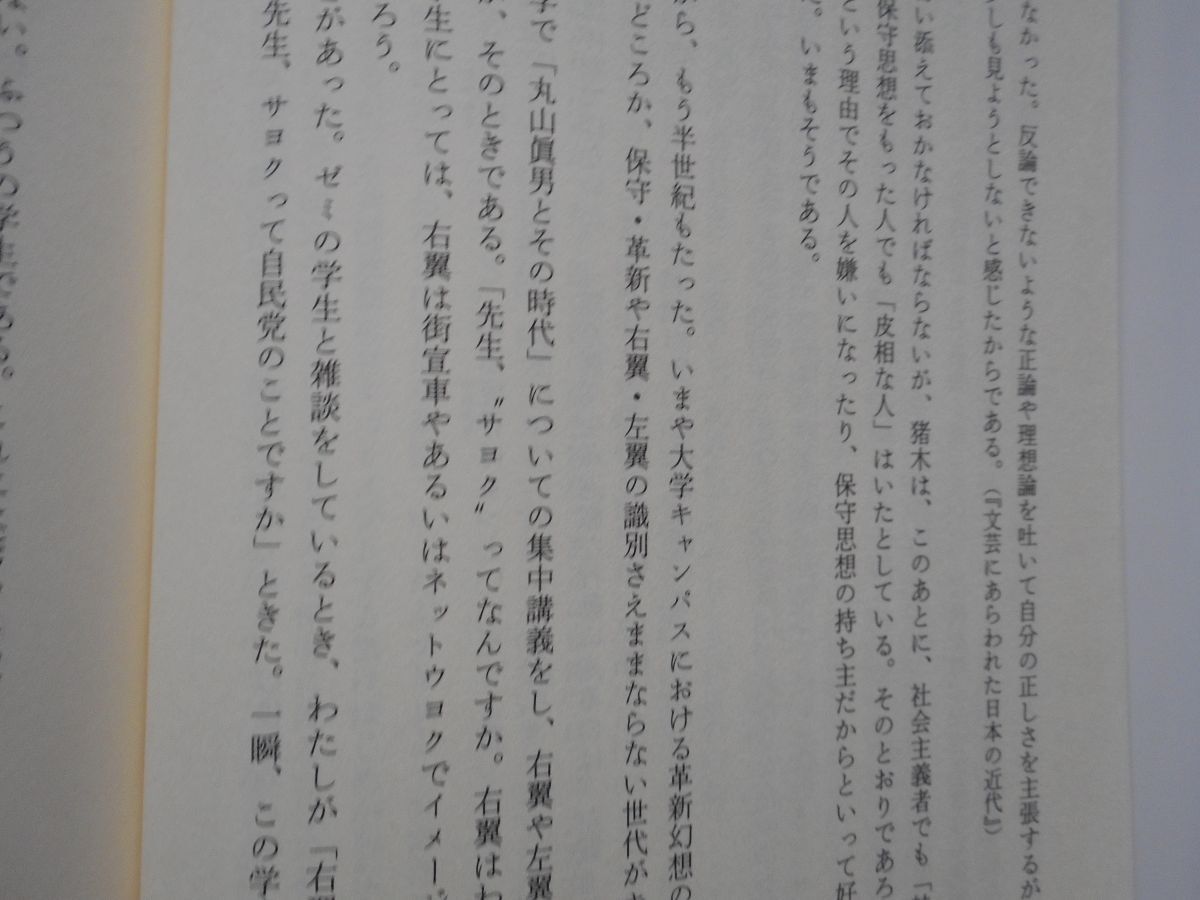 なかった。反論できないような正論や理想論を吐いて自分の正しさを主張するが
しも見ようとしないと感じたからである。(『文芸にあらわれた日本の近代』)
い添えておかなければならないが、猪木は、このあとに、社会主義者でも「
保守思想をもった人でも「皮相な人」はいたとしている。そのとおりであろ
という理由でその人を嫌いになったり、保守思想の持ち主だからといって好
。いまもそうである。
から、もう半世紀もたった。いまや大学キャンパスにおける革新幻想の
どころか、保守・革新や右翼・左翼の識別さえままならない世代が
学で「丸山眞男とその時代」についての集中講義をし、右翼や左翼
、そのときである。「先生、〝サヨク〟ってなんですか。右翼はわ
生にとっては、右翼は街宣車やあるいはネットウヨクでイメージ
ろう。
があった。ゼミの学生と雑談をしているとき、わたしが「右翼
先生、サヨクって自民党のことですか」ときた。一瞬、この学
い。ふつうの学生である。